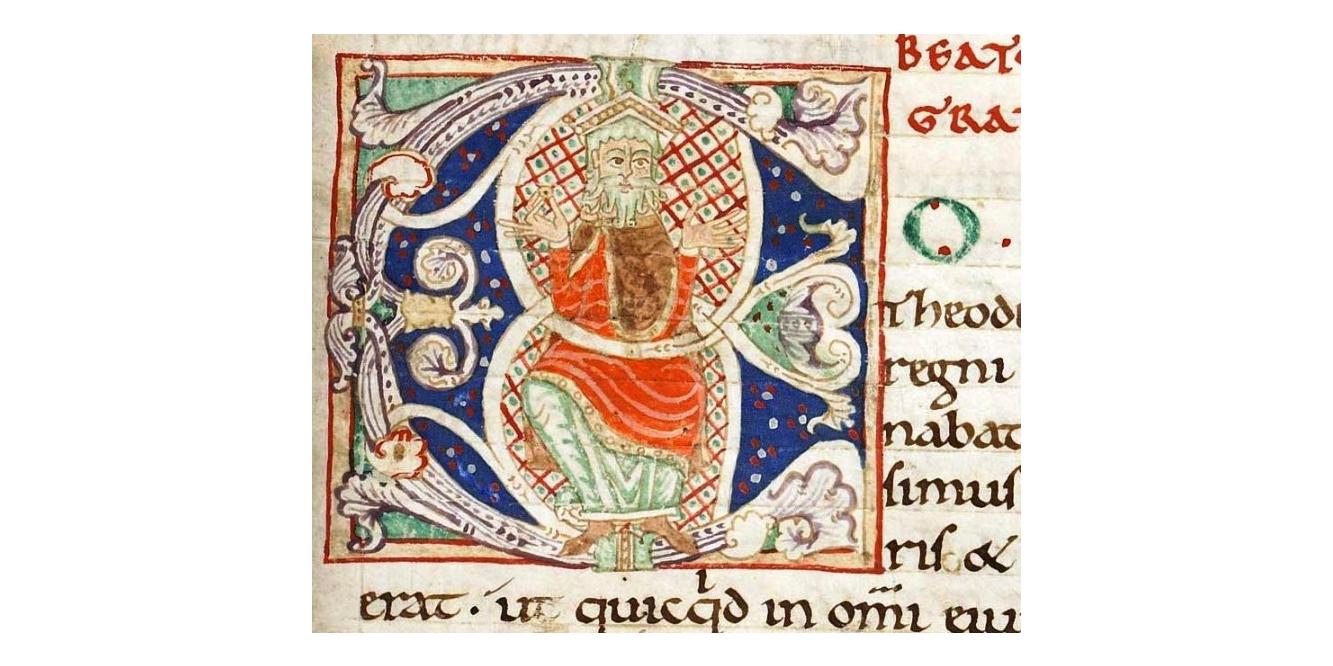 BEAT
GRA
EO.
Theod
regni
nabat
ſimuſ
riſ &
erat. ut quicqͥd in om̅i eiu